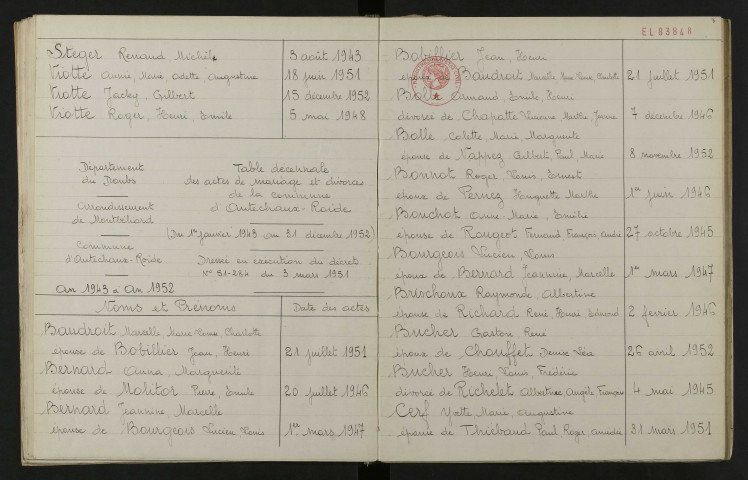 Steger Renaud Michèle 3 août 1943
Viotte Annie, Marie, Odette Augustine 18 juin 1951
Viotte Jacky, Gilbert 15 décembre 1952
Viotte Roger, Henri, Emile 5 mai 1948
Département du Doubs
Arrondissement de Montbéliard
Commune d'Autechaux-Roide
An 1943 à An 1952
Table décennale
des actes de mariage et divorces
de la commune
d'Autechaux-Roide
(Du 1er janvier 1943 au 31 décembre 1952)
Dressée en exécution du décret
N° 51-284 du 3 mars 1951
Noms et Prénoms Date des actes
Baudroit Marcelle, Marie Charlotte
épouse de Bobillier Jean, Henri 21 juillet 1951
Bernard Anna, Marguerite
épouse de Molitor Pierre, Emile 20 juillet 1946
Bernard Jeannine, Marcelle
épouse de Bourgeois Lucien, Louis 1er mars 1947
Bobillier Jean, Henri
époux de Baudroit Marcelle Marie Charlotte 21 juillet 1951
Bolle Armand, Emile, Henri
divorcé de Chapatte Marthe, 7 décembre 1946
Bolle Colette, Marie Marguerite
épouse de Nappez Gilbert, Paul Marie 8 novembre 1952
Bonnot Roger, Louis, Ernest
époux de Pernez Huguette Marthe 1er juin 1946
Bouchot Anne-Marie, Emilie
épouse de Rougeot Fernand François, André 27 octobre 1945
Bourgeois Lucien, Louis
époux de Bernard Jeannine, Marcelle 1er mars 1947
Brischoux Raymonde Albertine
épouse de Richard René Henri Edmond 2 février 1946
Bucher Gaston René
époux de Chouffet Denise Léa 26 avril 1952
Bucher Henri, Louis, Frédéric
divorcé de Richelet Albertine Angèle 4 mai 1945
Cerf Yvette Marie, Augustine
épouse de Thiébaud Paul, Roger, Amédée 31 mars 1951